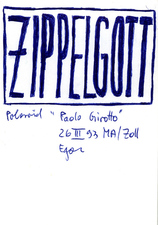 ZIPPELGOTT
Polaroid "Paolo Girotto"
26 III 93 MA/Zoll